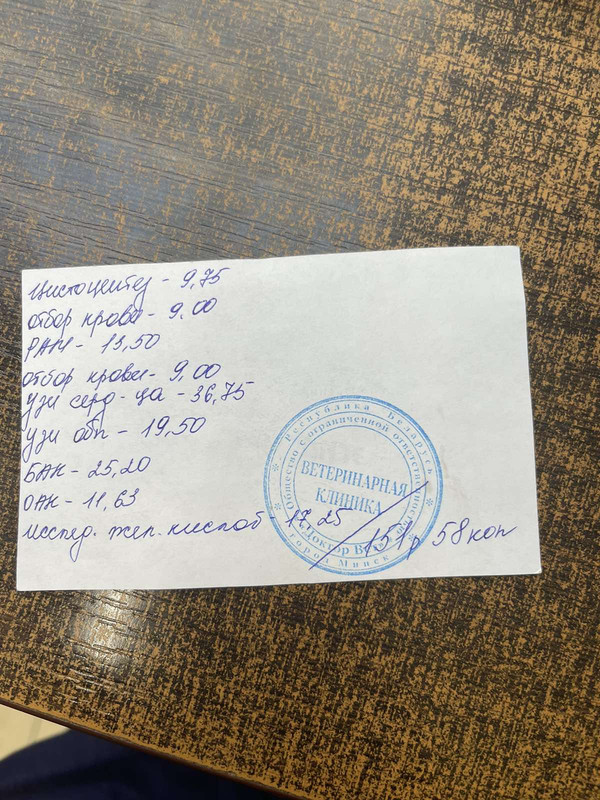 Цистоцентез - 9,75
отбор крови - 9,00
13,50
отбор крови - 9,00
узи серд-ца - 36,75
узи обп - 19,50
БАК - 25,20
ОАК - 11,63
исслед. жел. кислоб 17,25
151р 58коп
Республика Беларусь
Общество с ограниченной ответственностью
ВЕТЕРИНАРНАЯ
КЛИНИКА
Доктор
город Минск